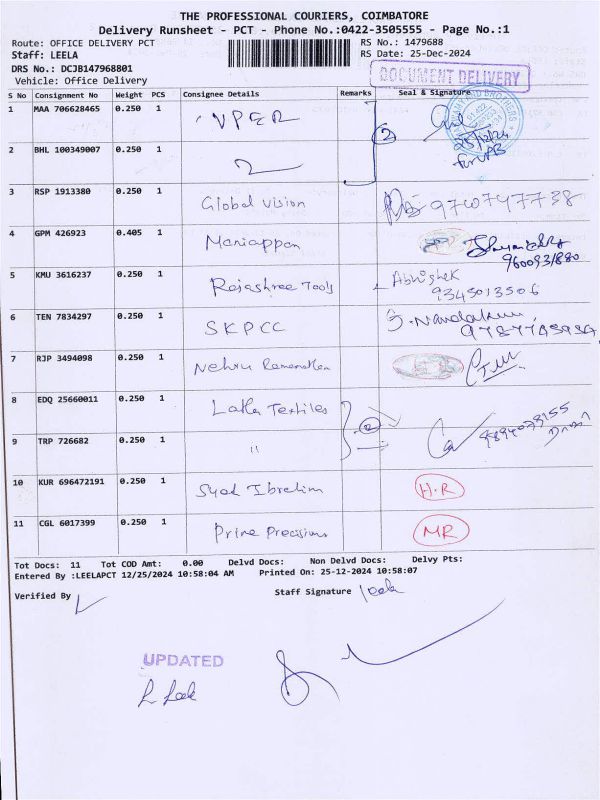 THE PROFESSIONAL COURIERS, COIMBATORE
Delivery Runsheet - PCT - Phone No.:0422-3505555 - Page No.:1
Route: OFFICE DELIVERY PCT RS No.: 1479688
Staff: LEELA RS Date: 25-Dec-2024
DRS No.: DCJB147968801
DOCUMENT DELIVERY
Vehicle: Office Delivery
S No Consignment No Weight PCS Consignee Details Remarks Seal & Signature
1 MAA 706628465 0.250 1 VPER 2
25/12/24
2 BHL 100349007 0.250 1
3 RSP 1913380 0.250 1 Global Vision
4 GPM 426923 0.405 1 Mariappan
5 KMU 3616237 0.250 1 Rajashree Tools Abhishek
9345013506
6 TEN 7834297 0.250 1 SKPCC
7 RJP 3494098 0.250 1 Nehru
8 EDQ 25660011 0.250 1 Latha Textiles
9 TRP 726682 0.250 1 "
10 KUR 696472191 0.250 1 Syed Ibrahim H.R
11 CGL 6017399 0.250 1 Prime Precisions MR
Tot Docs: 11 Tot COD Amt: 0.00 Delvd Docs: Non Delvd Docs: Delvy Pts:
Entered By :LEELAPCT 12/25/2024 10:58:04 AM Printed On: 25-12-2024 10:58:07
Verified By Staff Signature leela
UPDATED